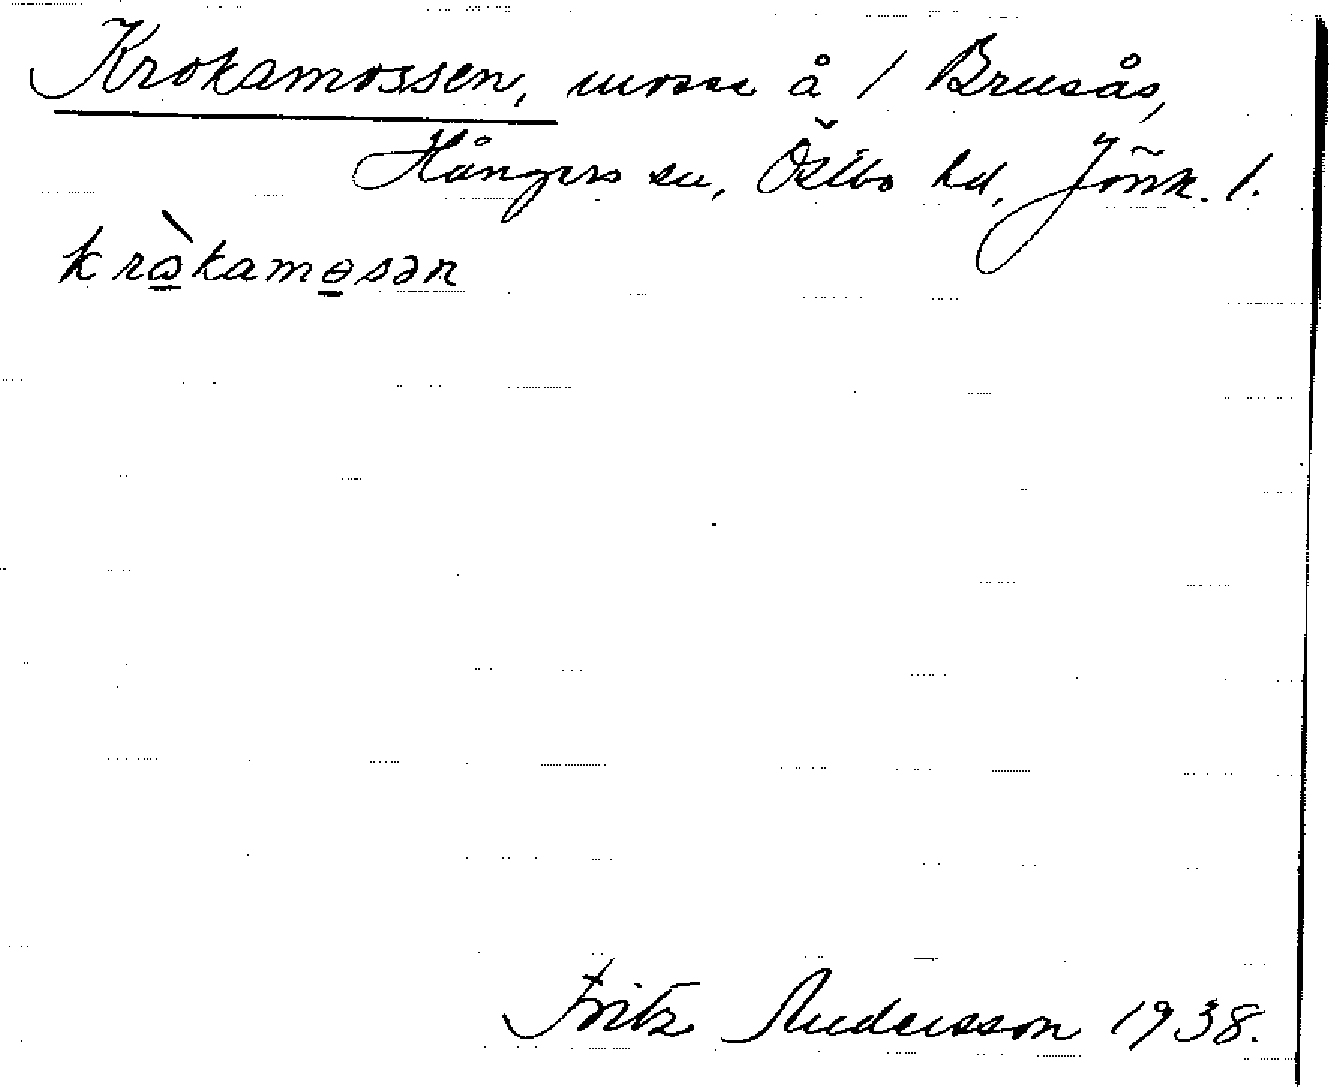 Krokamossen, mosse å 1 Brusås,
Hångers sn, Östbo hd, Jönk. l.
krò̲kamɵ̲sən
Fritz Andersson 1938.